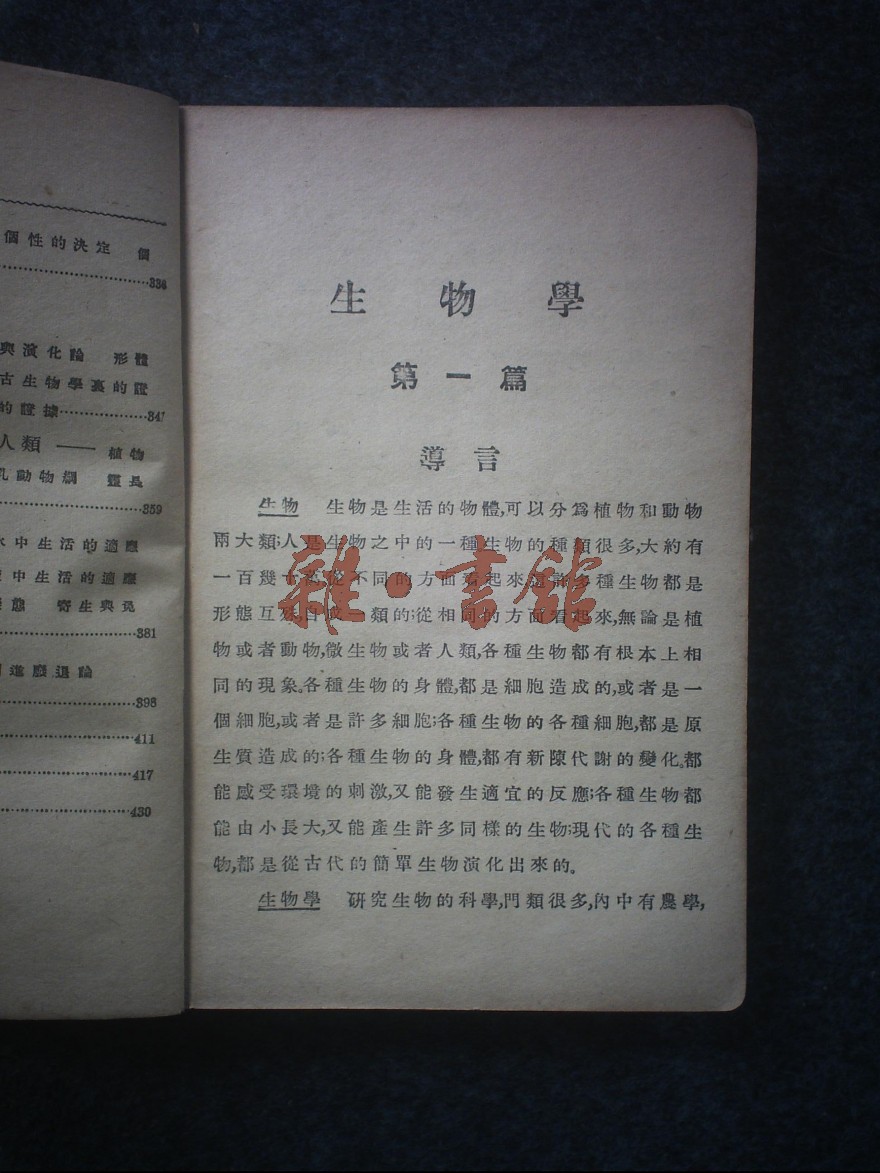 個性的決定 個
336
與演化論 形體
古生物學裏的證
的證據
347
人類 —— 植物
乳動物綱 靈長
359
水中生活的適應
中生活的適應
態 寄生與
381
進廢退論
398
411
417
430
生物學
第一篇
導言
生物 生物是生活的物體,可以分爲植物和動物
兩大類;人是生物之中的一種生物的種類很多,大約有
一百幾十萬從不同的方面看起來,這許多種生物都是
形態互殊,自成一類的;從相同的方面看起來,無論是植
物或者動物,微生物或者人類,各種生物都有根本上相
同的現象。各種生物的身體,都是細胞造成的,或者是一
個細胞,或者是許多細胞;各種生物的各種細胞,都是原
生質造成的;各種生物的身體,都有新陳代謝的變化。都
能感受環境的刺激,又能發生適宜的反應;各種生物都
能由小長大,又能產生許多同樣的生物;現代的各種生
物,都是從古代的簡單生物演化出來的。
生物學 研究生物的科學,門類很多,內中有農學,
雜·書館